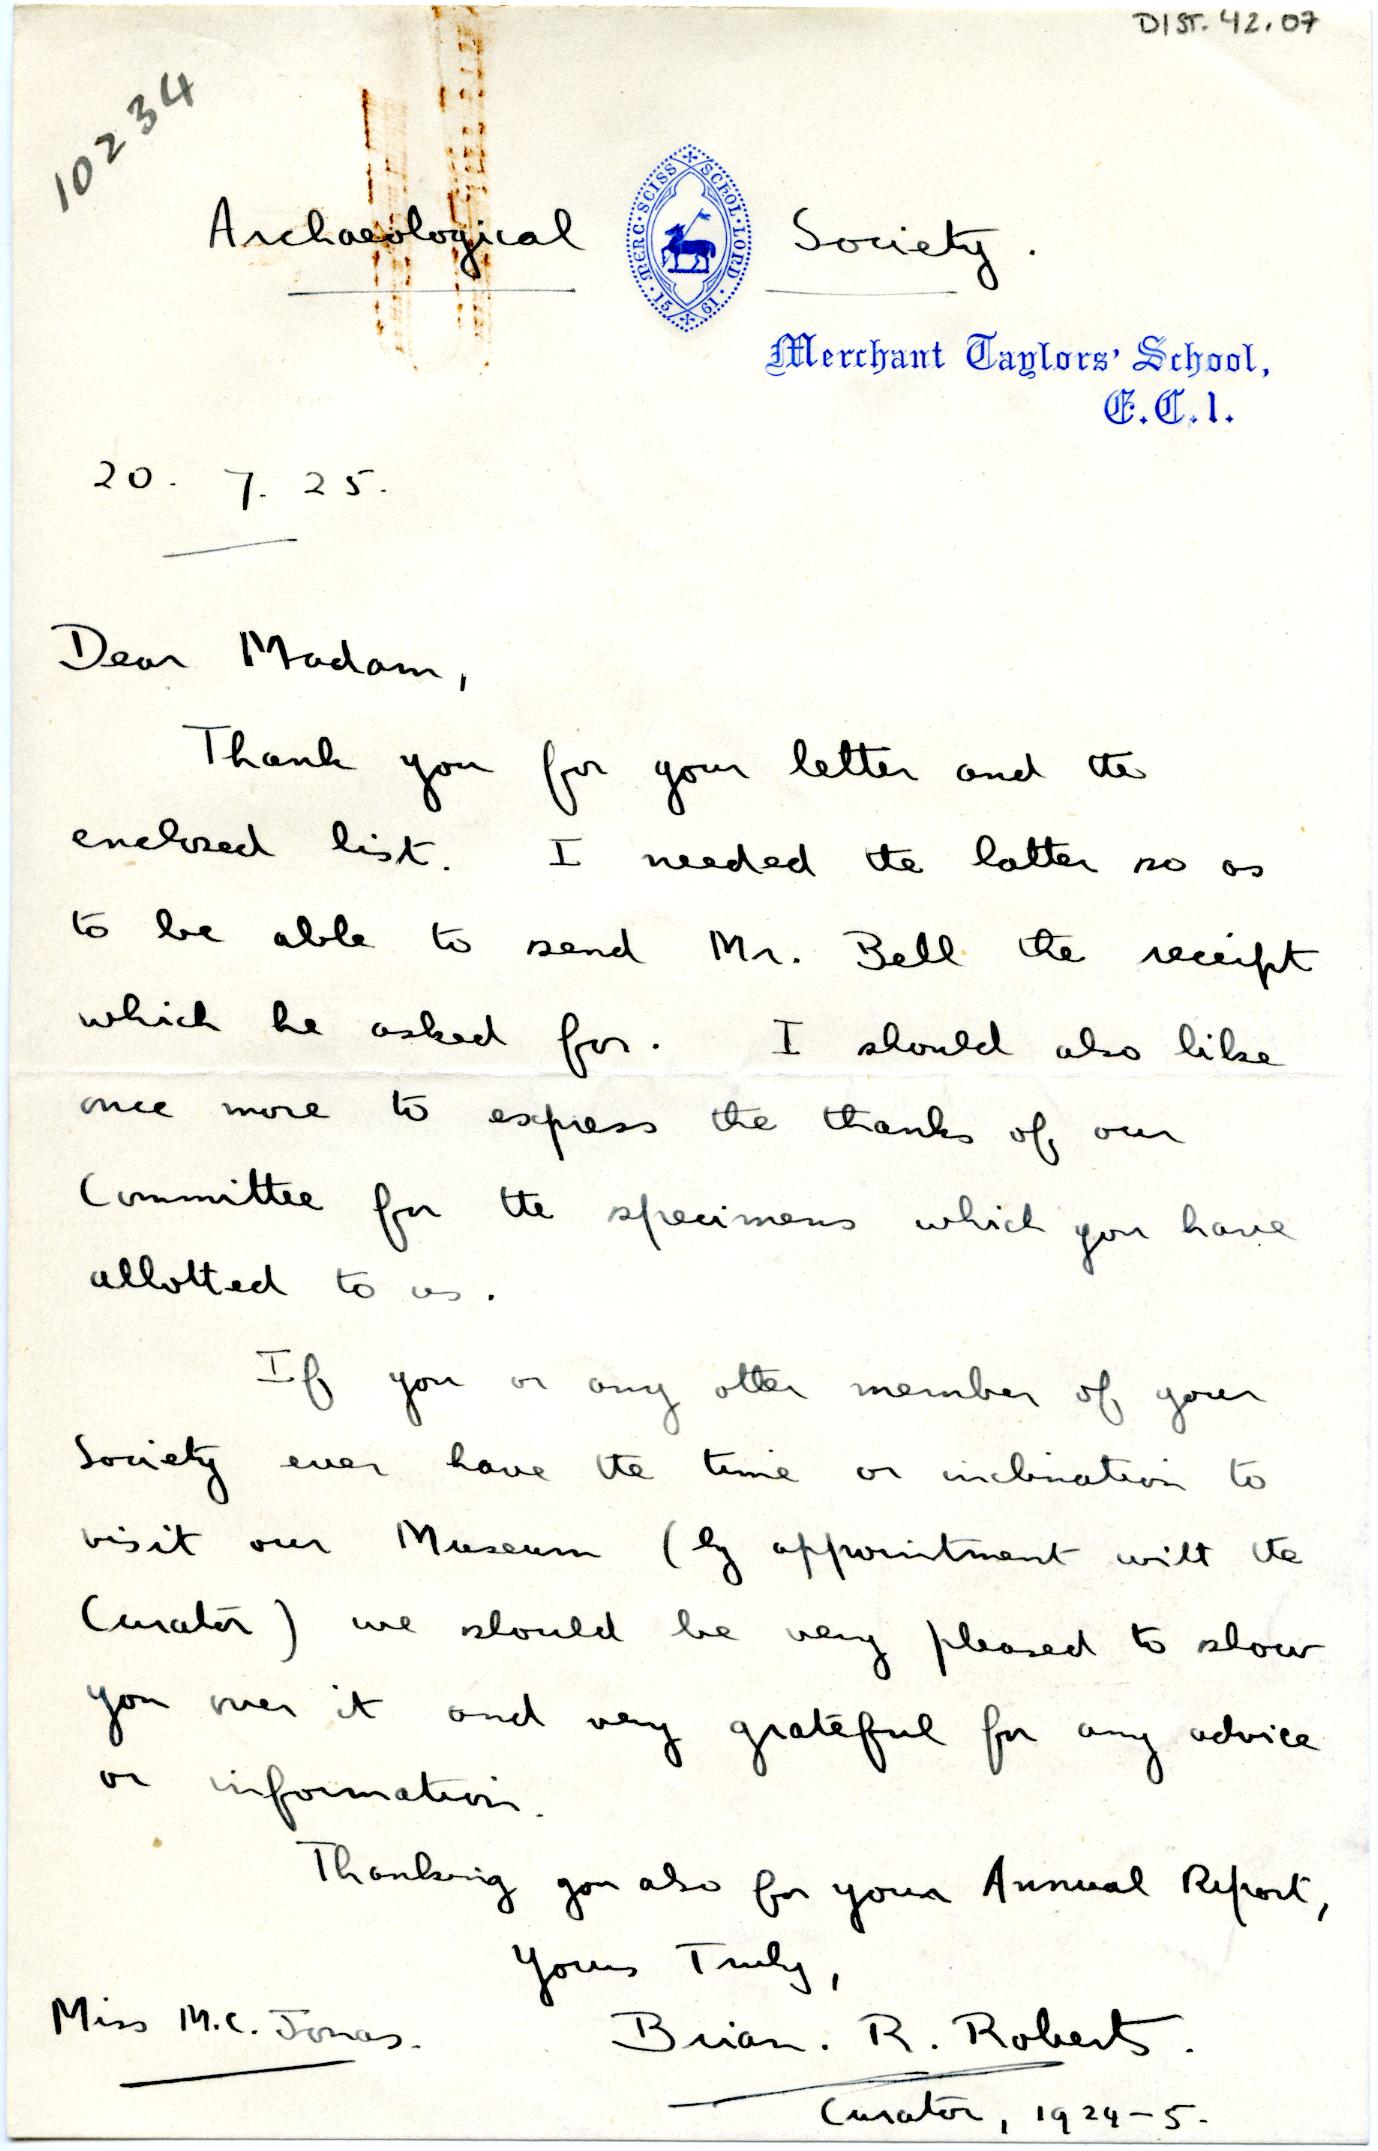 DIST. 42.07
10234
Archaeological Society.
MERC · SCISS · SCHOL · LOND · 15 61
Merchant Taylors' School,
E.C.1.
20. 7. 25.
Dear Madam,
Thank you for your letter and the
enclosed list. I needed the latter so as
to be able to send Mr. Bell the receipt
which he asked for. I should also like
once more to express the thanks of our
Committee for the specimens which you have
allotted to us.
If you or any other member of your
Society ever have the time or inclination to
visit our Museum (by appointment with the
Curator) we should be very pleased to show
you over it and very grateful for any advice
or information.
Thanking you also for your Annual Report,
Yours Truly,
Miss M.C. Jonas. Brian. R. Roberts.
Curator, 1924-5.